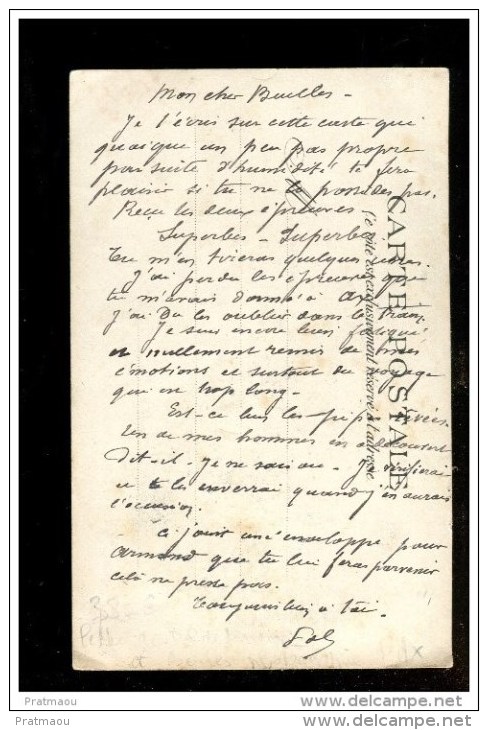 Mon cher Buelles -
Je t'écris sur cette carte qui
quoique un peu pas propre
par suite d'humidité te fera
plaisir si tu ne la possèdes pas.
Reçu les deux épreuves
Superbes - Superbes
Tu m'en tireras quelques unes.
J'ai perdu les épreuves que
tu m'avais donné à
J'ai dû les oublier dans le train.
Je suis encore bien fatigué
et nullement remis de mes
émotions et surtout du voyage
qui est trop long -
Est-ce bien les
Un de mes hommes en a découvert
dit-il - Je ne sais où - Je vérifierai
et te les enverrai quand j'en aurais
l'occasion.
Ci joint une enveloppe pour
Armand que tu lui feras parvenir
celà ne presse pas.
bien à toi.
CARTE POSTALE
Ce côté est exclusivement réservé à l'adresse
Pratmaou
Pratmaou
http://www.delcampe.net
http://www.delcampe.net